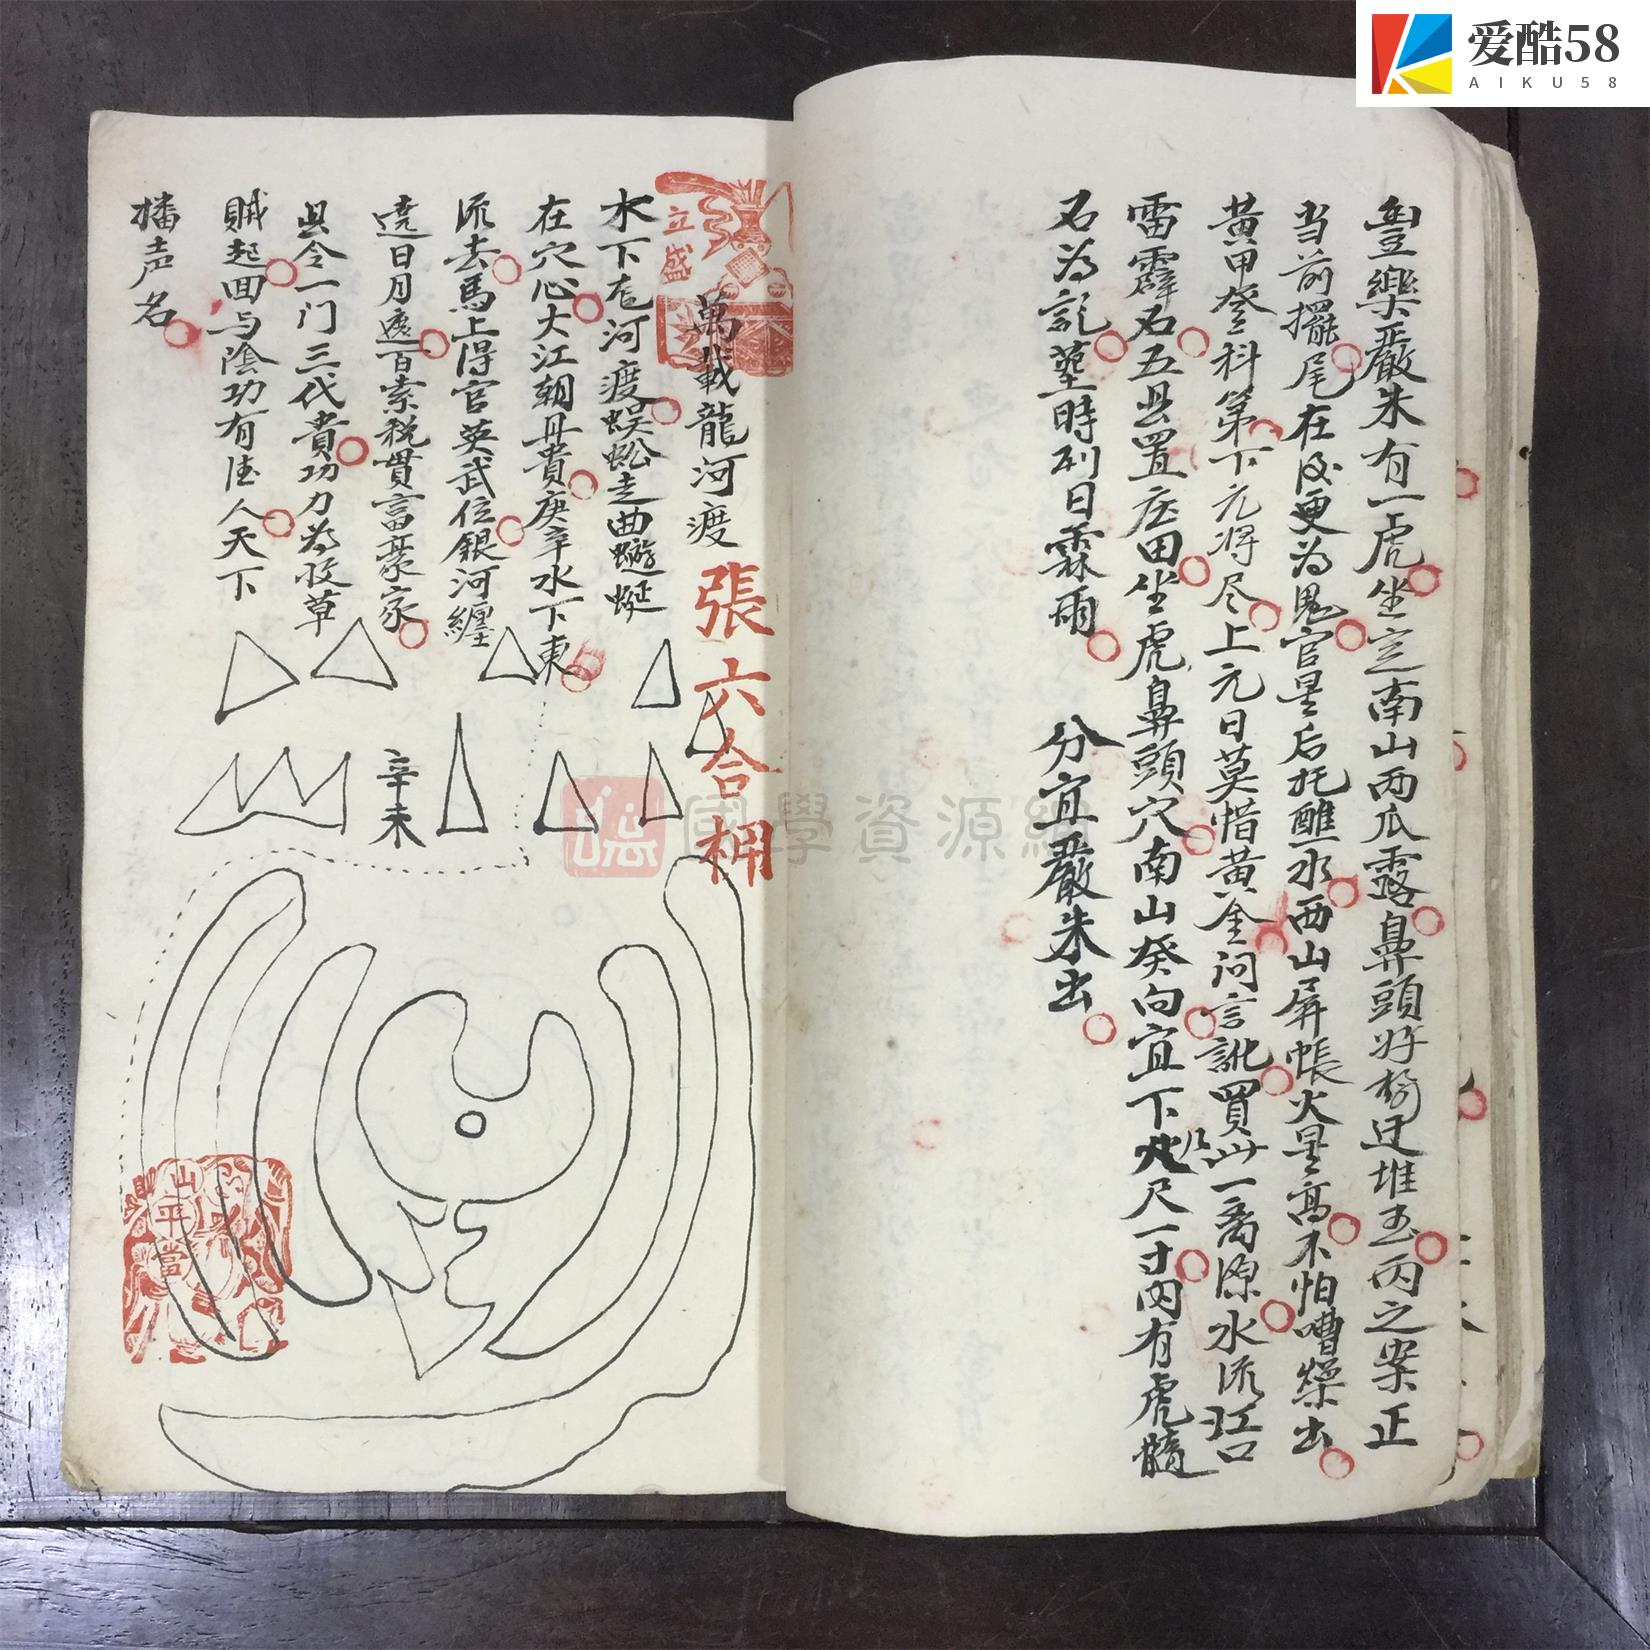 爱酷58
AIKU58
豐樂嚴朱有一虎坐定南山两瓜露鼻頭好 迁堆玉丙之案正
当前擺尾在后更为鬼官星后托醮水西山屏帳火星高不怕嘈燥出
黄甲登科第下元将尽上元日莫惜黄金问言訛買此一离源水流江口
雷霹石五里置庄田坐虎鼻頭穴南山癸向宜下 尺一寸内有虎髓
石为記塟時列日霖雨 分宜嚴朱出
立盛
萬載龍河渡 張六合
水下 河渡蜈蚣走曲蜿蜒
在穴心大江朝丹貴庚辛水下東
流去馬上得官英武位銀河纏
遶日月 百索税貫富豪家
县令一门三代貴功力为收草
賊起回与陰功有德人天下
播声名
辛未
國學資源網
山平當